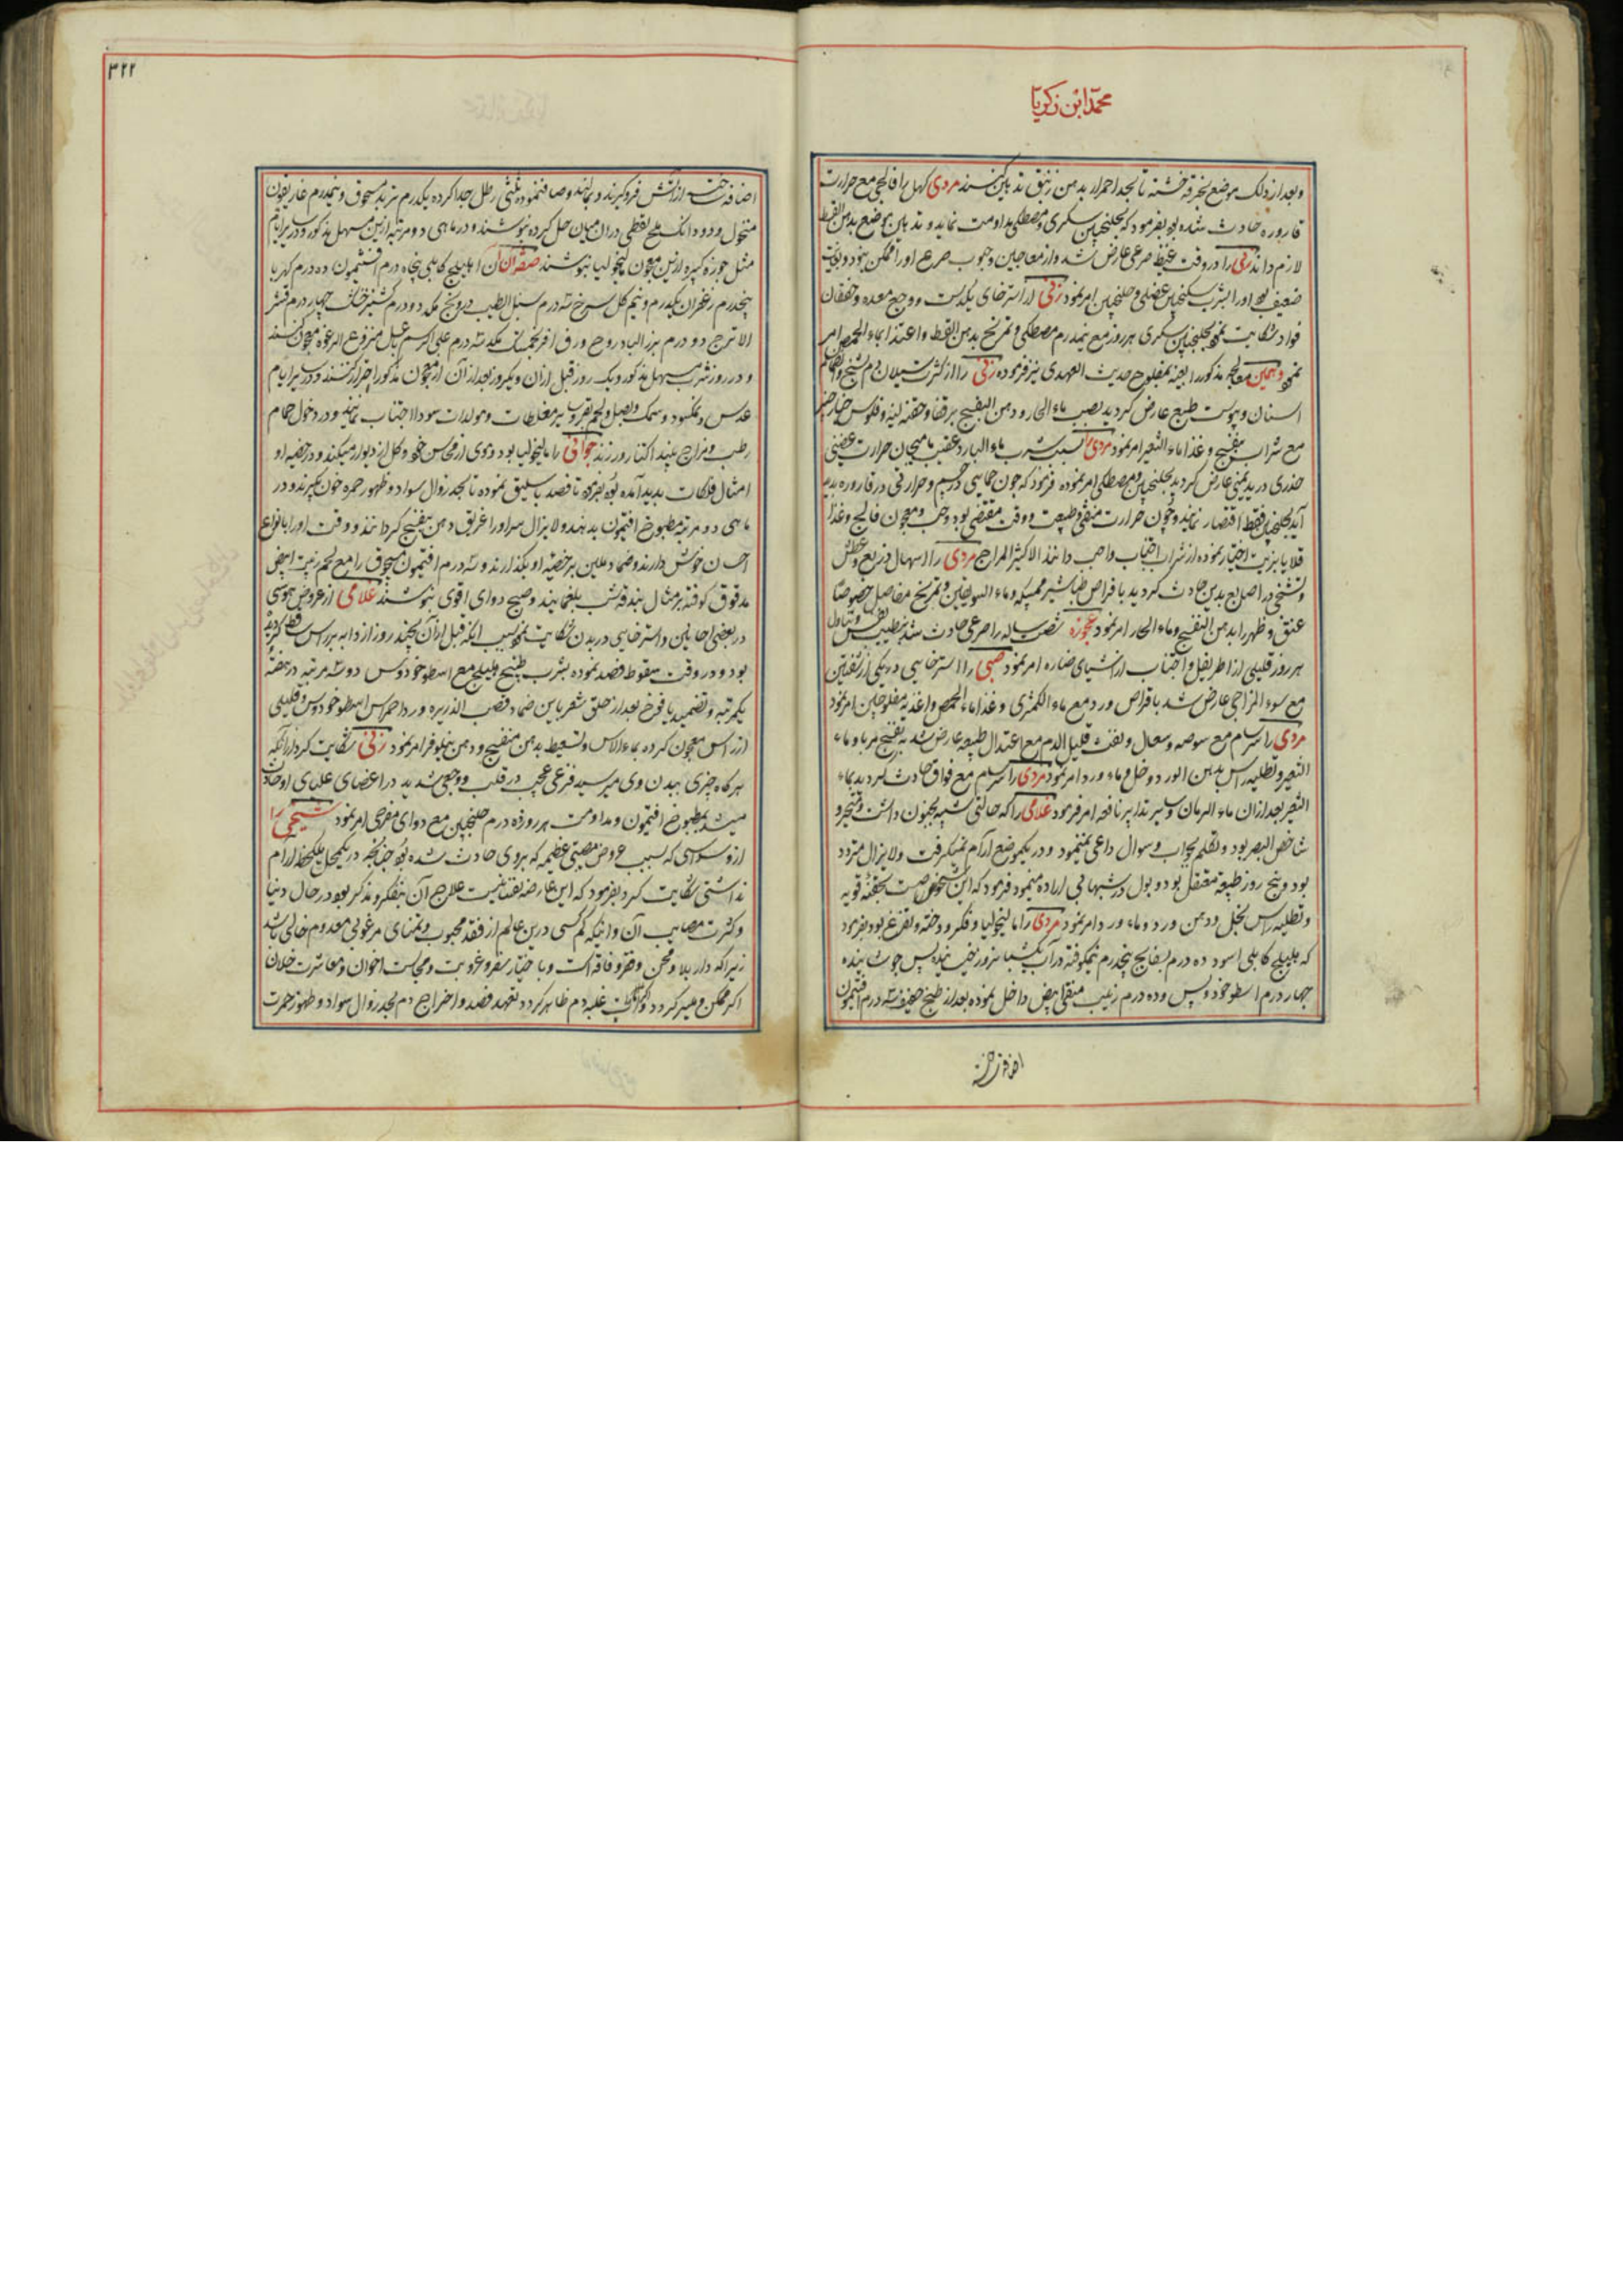 محمد ابن زکریا
وبعد از ذلک موضع بخرقه خشنه تا بحد احمرار بدهن زنبق تدهین کنند مردی کهل را فالجی مع حرارت
قاروره حادث شده بود بفرمود که بجلنجبین سکری و مصطکی مداومت نماید و تدهین موضع بدهن القسط
لازم داند زنی را در وقت غیظ صرعی عارض شد و از معاجین و حبوب صرع اورا ممکن نبود و بوئیت
ضعیف بود اورا بشرب سکنجبین عنصلی و جلنجبین امر نمود زنی از استرخای یکدست و وجع معده و خفقان
فواد شکایت نمود بجلنجبین سکری هر روز مع نیمدرم مصطکی و تمریخ بدهن القسط و اغتذا بماء الحمص امر
نمود وهمین معالجه مذکور را بعینه بمفلوج حدیث العهدی نیز فرموده زنی را از کثرت سیلان دم تشنج و انضمام
اسنان و یبوست طبع عارض گردید بصب ماء الحار و دهن البنفسج بر قفا و حقنه لینه و فلوس خیار شنبر
مع شراب بنفسج و غذا ماء الشعیر امر نمود مردی را بسبب شرب ماء البارد عقیب هیجان حرارت غضبی
خدری در ید یمنی عارض گردید بجلنجبین و مصطکی امر نموده فرمود که چون حمایی در جسم و حرارتی در قاروره پدید
آید بجلنجبین فقط اقتصار نماید و چون حرارت منتفی و طبیعت و وقت مقتضی بود و حب و معجون فالج و غذا
قلایا بزیت اختیار نموده از شراب اجتناب واجب دانند الا کثیر المزاج مردی را اسهال ذریع و عطش
و تشنجی در اصابع یدین حادث گردید باقراص طباشیر ممسکه و ماء السویقین و تمریخ مفاصل خصوصا
عنق و ظهر را بدهن البنفسج و ماء الحار امر نمود عجوزه شصت ساله را صرعی حادث شد بتطییب نفس و تناول
هر روز قلیلی از اطریفل و اجتناب از اشیای ضاره امر نمود صبی را استرخایی در یکی از شفتین
مع سوء المزاجی عارض شد باقراص ورد مع ماء الکمثری و غذا ماء الحمص و اغذیه مفلوجین امر نمود
مردی را سرسام مع سوصه و سعال و نفث قلیل الدم مع اعتدال طبیعه عارض شد به بنفسج مربا و ماء
الشعیر و تطلیه راس بدهن الورد و خل و ماء ورد امر نمود مردی را سرسام مع فواق حادث گردید بماء
الشعیر بعد از ان ماء الرمان و سایر تدابیر نافعه امر فرمود غلامی را که حالتی شبیه بجنون داشت و متحیر و
شاخص البصر بود و تکلم بجواب و سوال داعی نمینمود و در یکموضع آرام نمیگرفت و لا یزال متردد
بود و پنج روز طبیعه معتقل بود و بول در شبها بی اراده مینمود فرمود که این شخوص است بحقنه قویه
و تطلیه راس بخل و دهن ورد و ماء ورد امر نمود مردی را مالیخولیا و فکر و وحشه و تفزع بود بفرمود
که هلیلج کابلی اسود ده درم بسفایج پنجدرم نیمکوفته در آب یکشبانروز بخیسانند پس جوشانیده
چهار درم اسطوخودوس و ده درم زبیب منقی ابیض داخل نموده بعد از طبخ خفیف سه درم افتیمون
اضافه ساخته
۳۲۲
اضافه ساخته از آتش فرو گیرند و بمانند و صاف نموده ثلثی رطل جدا کرده یکدرم تربد مسحوق و نیمدرم غاریقون
منخول و دو دانگ ملح نفطی در ان میان حل کرده بنوشند و در ماهی دو مرتبه ازین مسهل مذکور و در سایر ایام
مثل جوزه کبیره ازین معجون مالیخولیا بنوشند صفة آن اهلیلج کابلی پنجاه درم افتیمون ده درم کهربا
پنجدرم زعفران یکدرم و نیم کل سرخ سه درم سنبل الطیب درونج هر یک دو درم گشنیز خشک چهار درم قشر
الاترج دو درم بزر البادروج ورق افرنجمشک هر یک سه درم علی الرسم بعسل منزوع الرغوه معجون کنند
و در روز شرب مسهل مذکور و یک روز قبل از ان و یکروز بعد از آن از معجون مذکور احتراز کنند و در سایر ایام
عدس و نمکسود و سمک و بصل و لحم بقر و سایر مغلظات و مولدات سودا اجتناب نمایند و در دخول حمام
رطب و مزاج نبیذ اکثار ورزند جوانی را مالیخولیا بود و موی از محاسن خود و کل از دیوار میکند و در خصیه او
امثال فلکات پدید آمده بود بفرموده تا فصد باسلیق نموده تا بحد زوال سواد و ظهور حمره خون بگیرند و در
ماهی دو مرتبه مطبوخ افتیمون بدهند و لا یزال سر اورا غریق دهن بنفسج گردانند و وقت اورا بانواع
احسن خوش دارند و ضماد ملین بر خصیه او بگذارند و سه درم افتیمون مسحوق را مع لحم زبیب ابیض
مدقوق کوفته بر مثال بندقه شب بلغمانید و صبح دوای اقوی بنوشند غلامی از عروض هوسی
در بعضی احایین و استرخایی در بدن شکایت نمود بسبب اینکه قبل از آن بچند روز از دابه بر راس سقط گردیده
بود و در وقت سقوط فصد نموده بشرب طبیخ هلیلج مع اسطوخودوس دو سه مرتبه در هفته
یکمرتبه و تضمید یافوخ بعد از حلق شعر باین ضماد قصب الذریره ورد احمر آس اسطوخودوس و قلیلی
ازر اس معجون کرده بماء الاس و تسعیط بدهن بنفسج و دهن نیلوفر امر نمود زنی شکایت کرد از آنکه
هر گاه چیزی ببدن وی میرسید فزعی عجیب در قلب و وجعی شدید در اعضای علیای او حادث
میشد بمطبوخ افتیمون و مداومت هر روزه ده درم جلنجبین مع دوای مفرحی امر نمود شیخی را
از وسواسی که بسبب عروض مصیبتی عظیمه که بروی حادث شده بود چنانچه در یکمحل یک لحظه آرام
نداشتی شکایت کرد بفرمود که این عارضه نفسانیست علاج آن بتفکر و تذکر بود در حال دنیا
و کثرت مصایب آن و اینکه کم کسی درین عالم از فقد محبوب و تمنای مرغوبی معدوم خالی باشد
زیرا که دار بلا و محن و فقر و فاقه است و باختیار سفر و غربت و مجالست اخوان و معاشرت خلان
اگر ممکن و میسر گردد و اگر علامات غلبه دم ظاهر گردد بتعهد فصد و اخراج دم بحد زوال سواد و ظهور حمرت